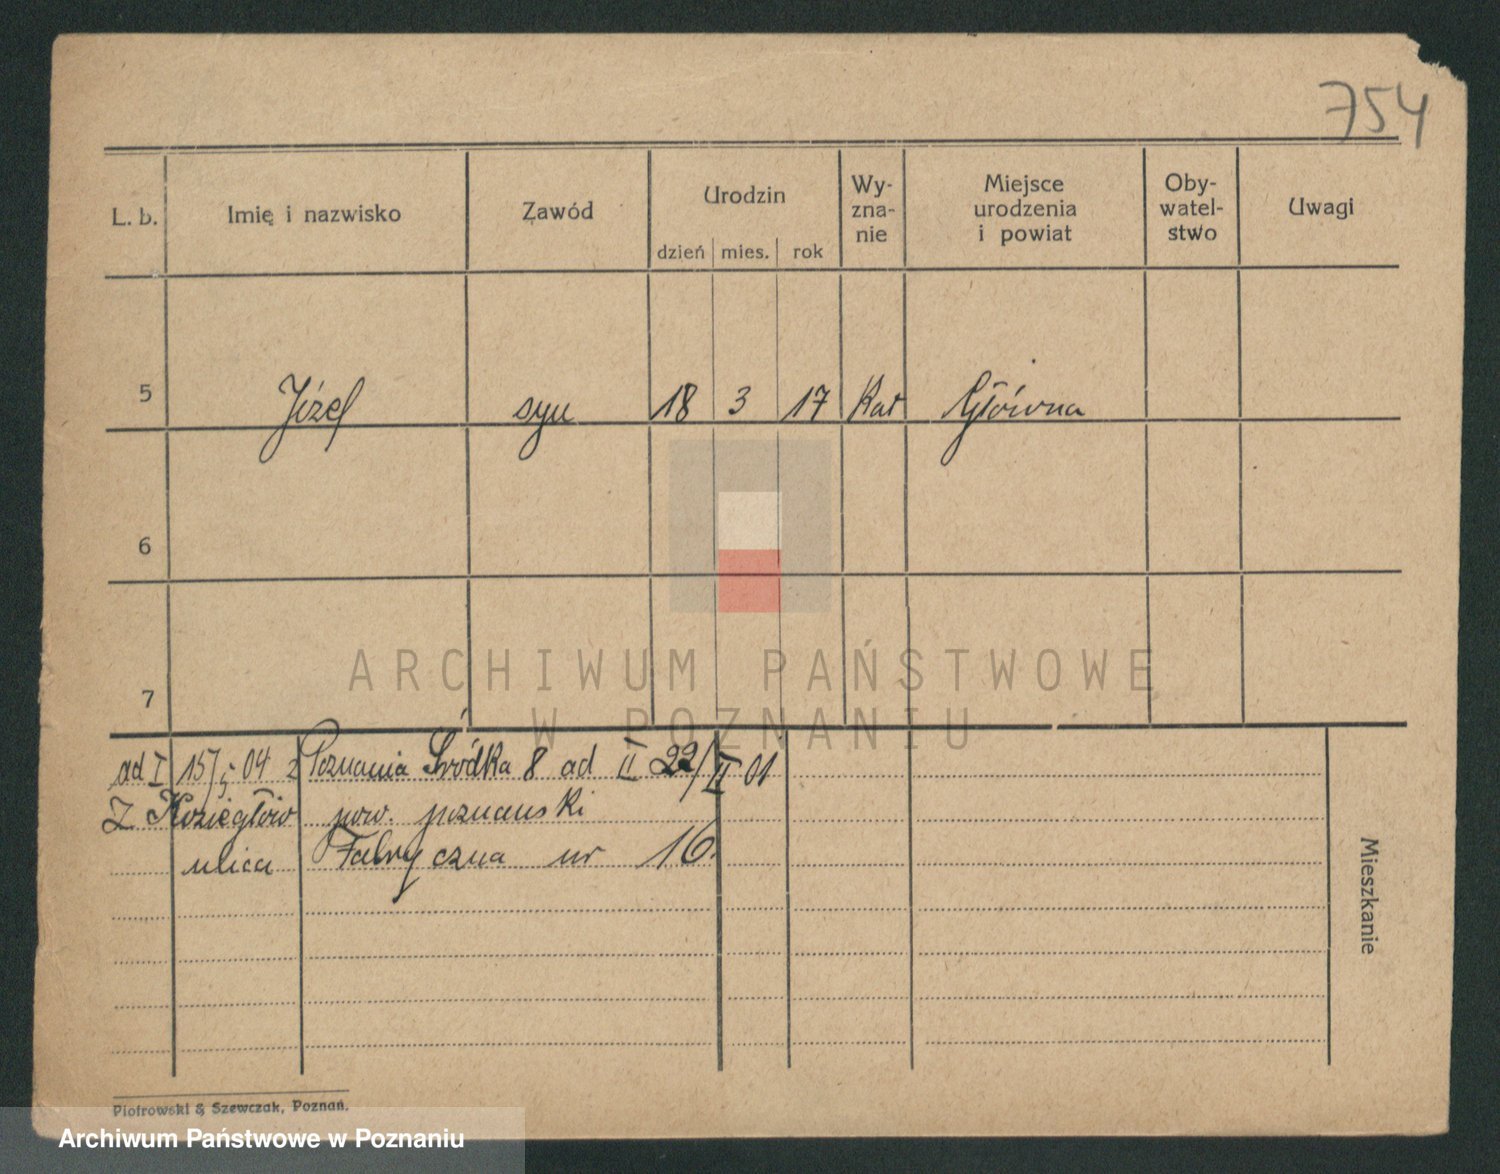 754
L. b. Imię i nazwisko Zawód Urodzin Wy-zna-nie Miejsce urodzenia i powiat Oby-watel-stwo Uwagi
dzień mies. rok
5 Józef syn 18 3 17 Kat Główna
6
7
ARCHIWUM PAŃSTWOWE
W POZNANIU
ad I 15/5 04 z Poznania Śródka 8 ad II 22/II 01
Z Koziegłów pow. poznański
ulica Fabryczna nr 16.
Mieszkanie
Piotrowski & Szewczak, Poznań.
Archiwum Państwowe w Poznaniu